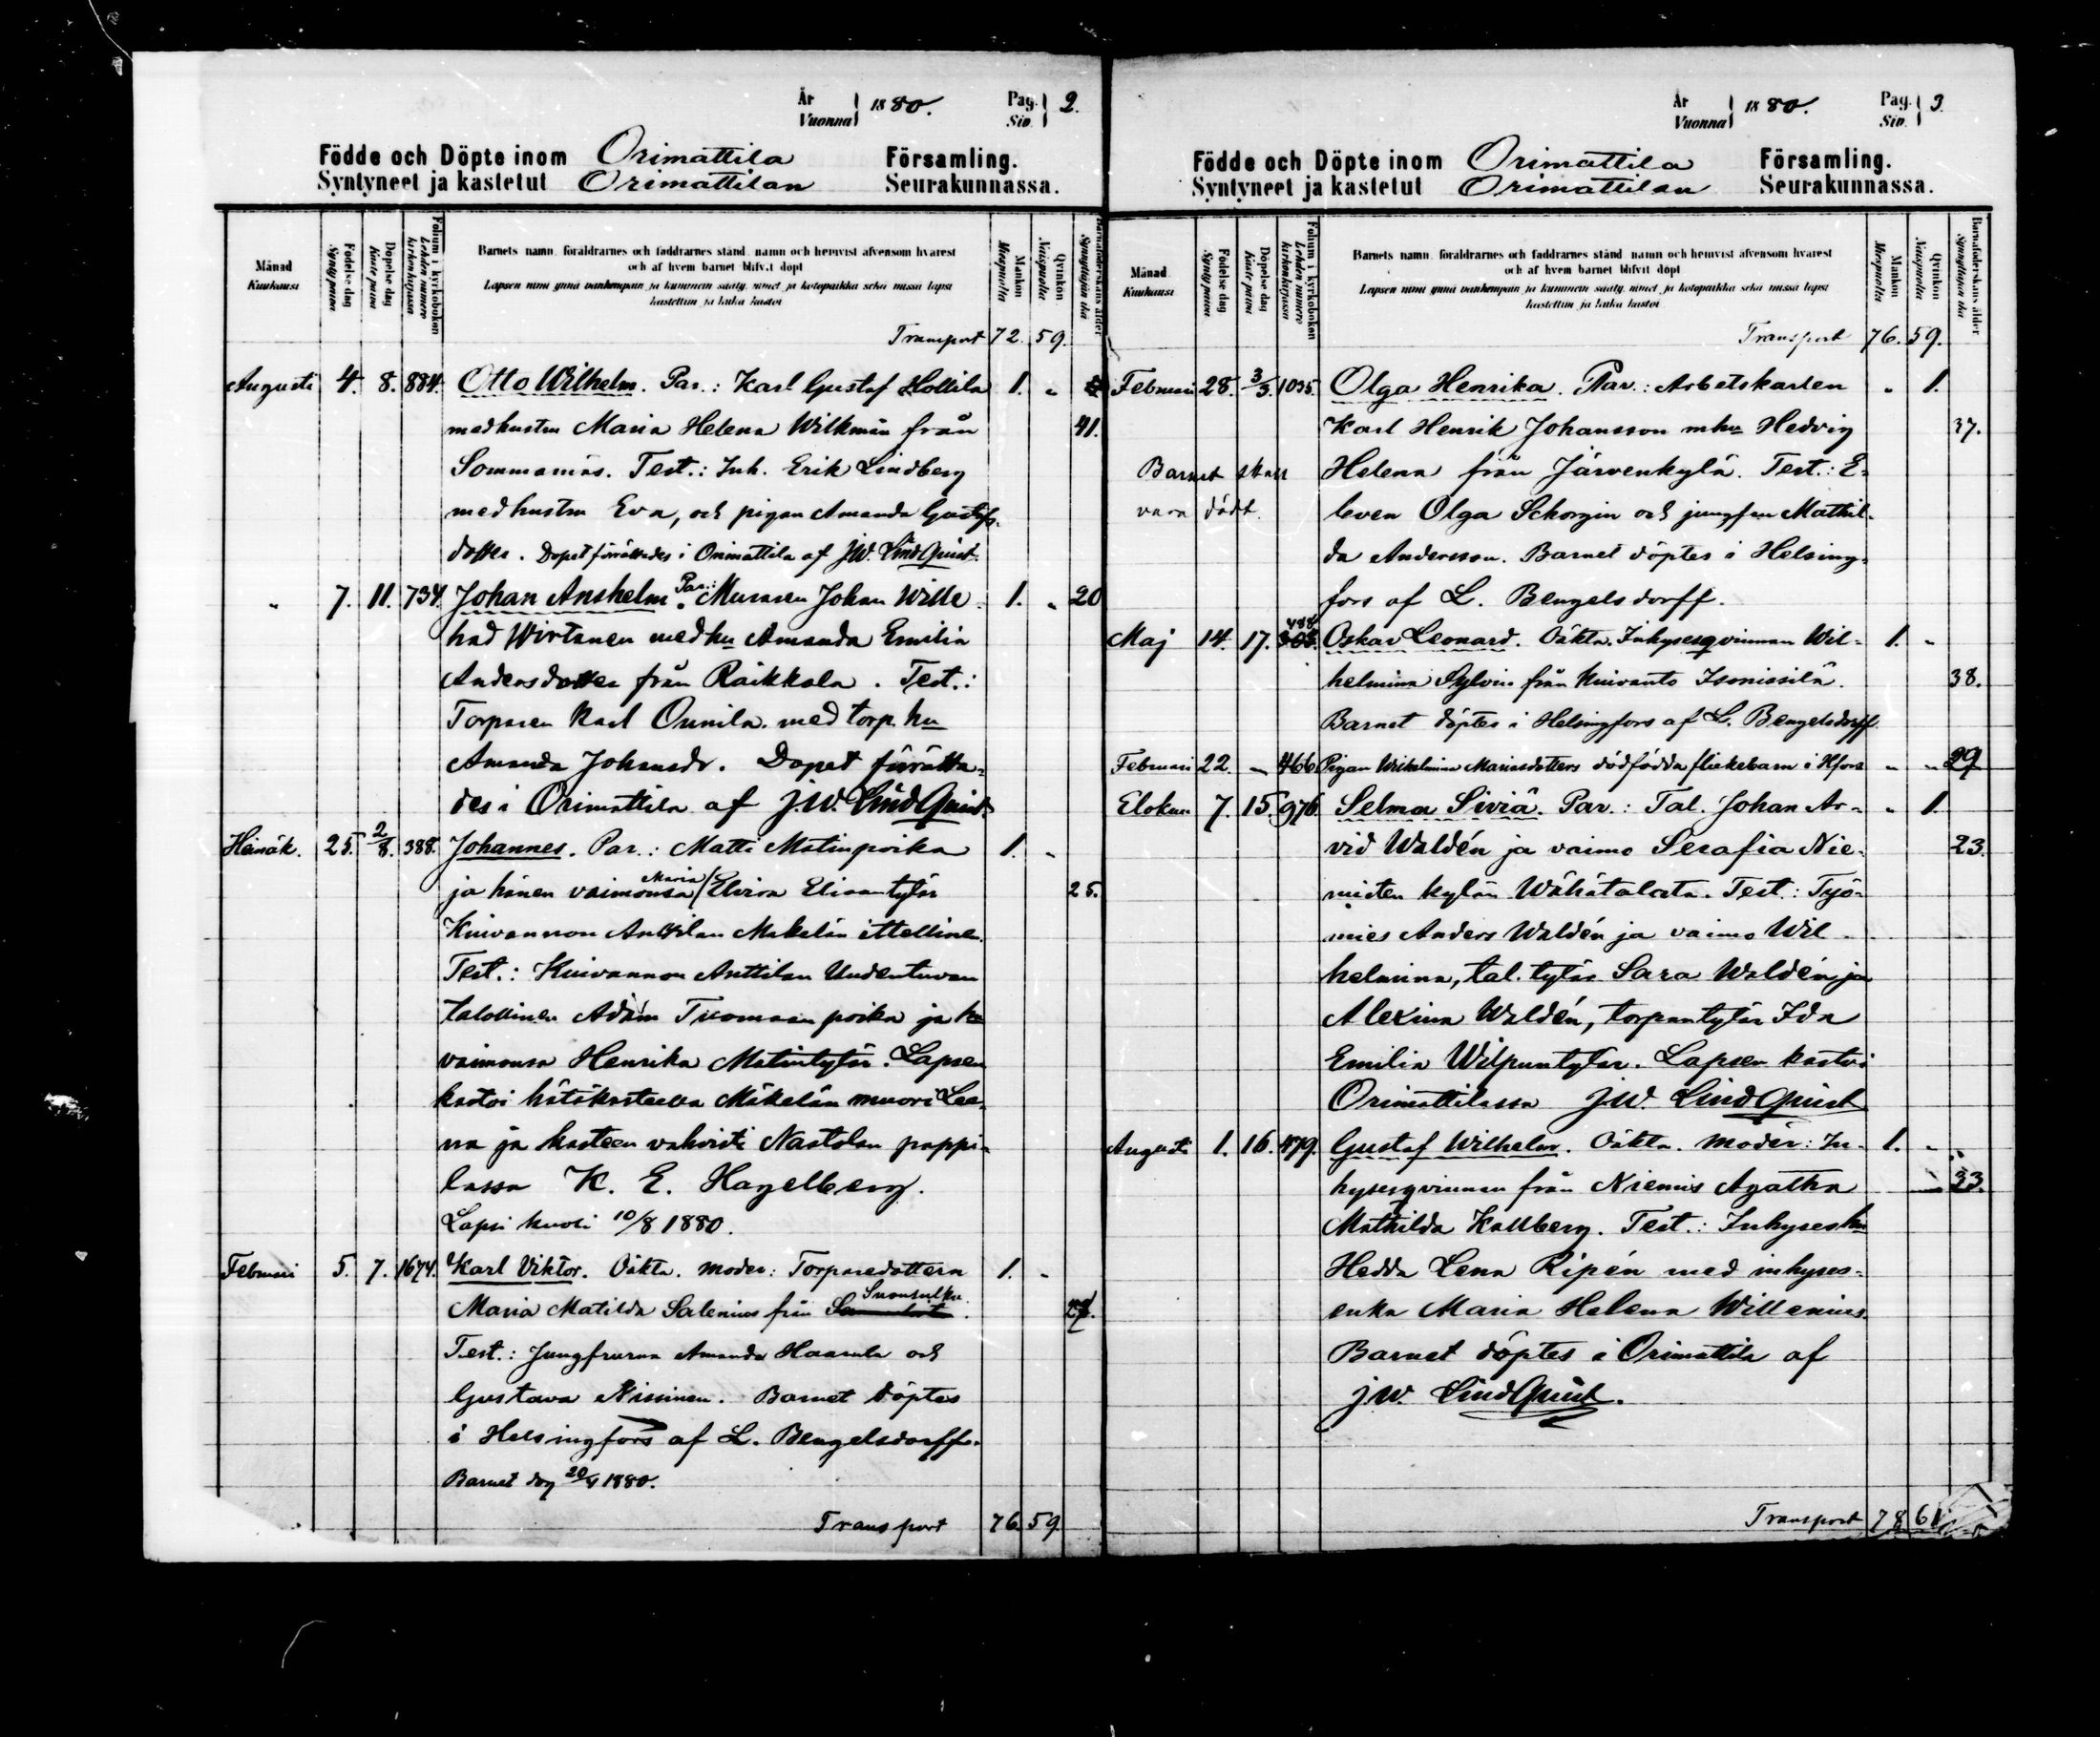 År
Vuonna } 1880.
Pag.
Siv. } 2.
Födde och Döpte inom Orimattila Församling.
Syntyneet ja kastetut Orimattilan Seurakunnassa.
Månad
Kuukausi
Födelse dag
Synty päivä
Döpelse dag
Kaste päivä
Folium i kyrkoboken
Lehden numero kirkonkirjassa
Barnets namn, föräldrarnes och faddrarnes stånd, namn och hemvist äfvensom hvarest
och af hvem barnet blifvit döpt
Lapsen nimi ynnä vanhempain ja kummein sääty, nimet ja kotopaikka sekä missä lapsi
kastettiin ja kuka kastoi
Mankön
Miespuolta
Qvinkön
Naispuolta
Barnaföderskans ålder
Synnyttäjän ikä
Transport 72. 59.
Augusti 4. 8. 884. Otto Wilhelm. Par.: Karl Gustaf Hollila 1. "
medhustru Maria Helena Wilkmän från 41.
Sommanäs. Test.: Inh. Erik Lindberg
medhustru Eva, och pigan Amanda Gustafs-
dotter. Dopet förrättades i Orimattila af J.W. LindQuist.
" 7. 11. 734. Johan Anshelm. Par.: Muraren Johan Wille 1. " 20
had Wirtanen medhu Amanda Emilia
Andersdotter från Räikkälä. Test.:
Torparen Karl Onnila med torp. hu
Amanda Johansdr. Dopet förätta-
des i Orimattila af J.W. LindQuist.
Heinäk. 25. 2/8. 388. Johannes. Par.: Matti Matinpoika 1. "
ja hänen vaimonsa Maria Elvira Eliaantytär 25.
Kuivannon Anttilan Mäkelän ittelline.
Test.: Kuivannon Anttilan Uudentuvan
talollinen Adam Tuomaan poika ja
vaimonsa Henrika Matintytär. Lapsen
kastoi hätäkasteella Mäkelän muori Lee-
na ja kasteen vahvisti Nastolan pappi-
lassa K. E. Hagelberg.
Lapsi kuoli 10/8 1880.
Februari 5. 7. 1674. Karl Viktor. Oäkta. moder: Torparedottern 1. "
Maria Matilda Salenius från Suonsulku. 27.
Test.: Jungfrurna Amanda Haarala och
Gustava Nissinen. Barnet döptes
i Helsingfors af L. Bengelsdorff.
Barnet dog 20/4 1880.
Transport 76. 59.
År
Vuonna } 1880.
Pag.
Siv. } 3.
Födde och Döpte inom Orimattila Församling.
Syntyneet ja kastetut Orimattilan Seurakunnassa.
Månad
Kuukausi
Födelse dag
Synty päivä
Döpelse dag
Kaste päivä
Folium i kyrkoboken
Lehden numero kirkonkirjassa
Barnets namn, föräldrarnes och faddrarnes stånd, namn och hemvist äfvensom hvarest
och af hvem barnet blifvit döpt
Lapsen nimi ynnä vanhempain ja kummein sääty, nimet ja kotopaikka sekä missä lapsi
kastettiin ja kuka kastoi
Mankön
Miespuolta
Qvinkön
Naispuolta
Barnaföderskans ålder
Synnyttäjän ikä
Transport 76. 59.
Februari 28. 3/3. 1035. Olga Henrika. Par.: Arbetskarlen " 1.
Karl Henrik Johansson mhu Hedvig 37.
Barnet skall Helena från Järvenkylä. Test.: E-
vara dödt. leven Olga Schorgin och jungfrun Mathil-
da Andersson. Barnet döptes i Helsing-
fors af L. Bengelsdorff.
Maj 14. 17. 488 Oskar Leonard. Oäkta. Inhysesqvinnan Wil- 1. "
helmina Sylvin från Kuivanto Isonissilä. 38.
Barnet döptes i Helsingfors af L. Bengelsdorff.
Februari 22. — 466 Pigan Wilhelmina Mariasdotters dödfödda flickebarn i Hfors " " 29
Elokuu 7. 15. 976. Selma Siviä. Par.: Tal. Johan Ar- " 1.
vid Waldén ja vaimo Serafia Nie- 23.
misten kylän Wähätalosta. Test.: Työ-
mies Anders Waldén ja vaimo Wil-
helmina, tal. tytär Sara Waldén, ja
Alexina Waldén, torpantytär Ida
Emilia Wilpuntytär. Lapsen kastoi
Orimattilassa J.W. LindQuist
Augusti 1. 16. 479. Gustaf Wilhelm. Oäkta. moder: In- 1. "
hysesqvinnan från Niemis Agatha 33.
Mathilda Kallberg. Test.: Inhyseshu
Hedda Lena Ripén med inhyses-
enka Maria Helena Willenius.
Barnet döptes i Orimattila af
J.W. LindQuist.
Transport 78 61